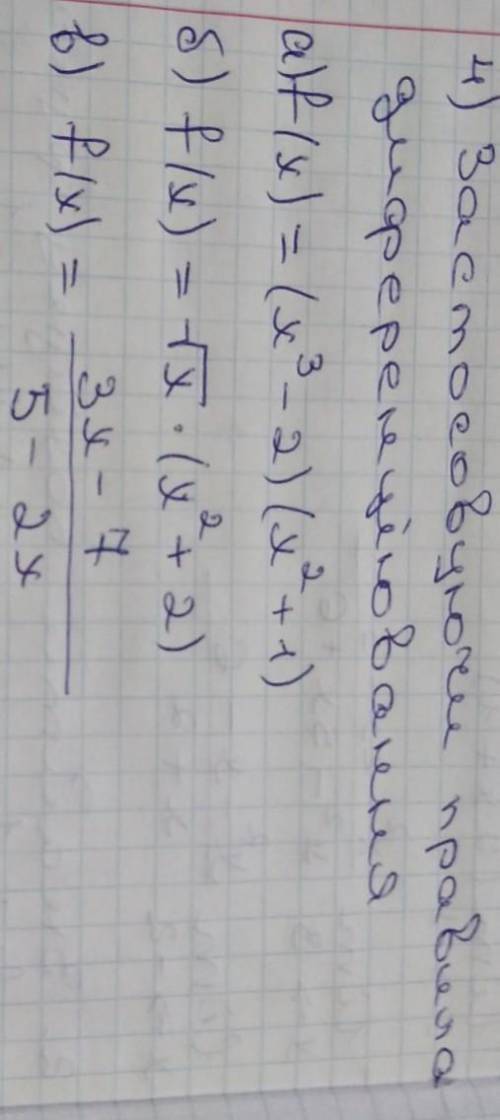 4) Застосовуючи правила
диференціювання
а) f(x) = (x³ - 2)(x² + 1)
б) f(x) = √x · (x² + 2)
в) f(x) = (3x - 7)/(5 - 2x)